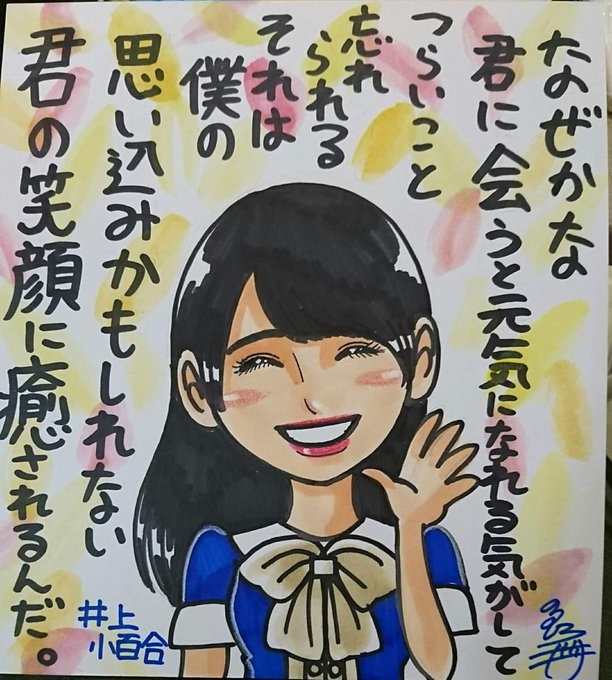 なぜかな
君に会うと元気になれる気がして
つらいこと
忘れ
られる
それは
僕の
思い込みかもしれない
君の笑顔に癒されるんだ。
井上
小百合